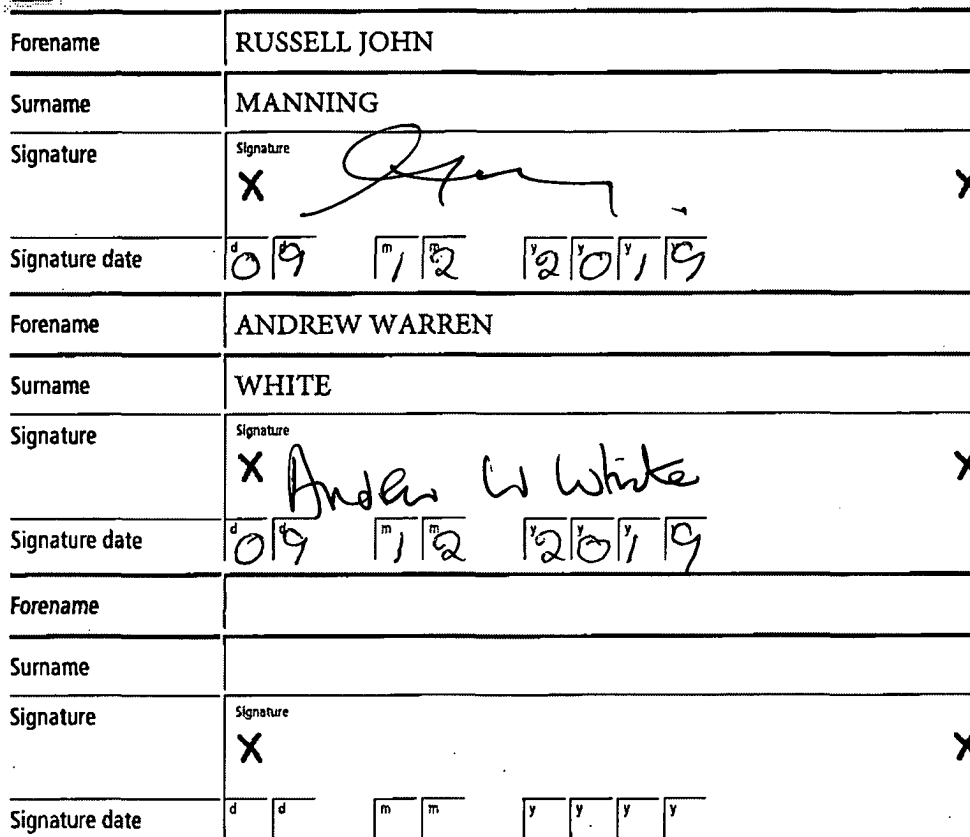 Forename RUSSELL JOHN
Surname MANNING
Signature Signature
X X
Signature date d d m m y y y y
09 12 2019
Forename ANDREW WARREN
Surname WHITE
Signature Signature
X Andrew W White X
Signature date d d m m y y y y
09 12 2019
Forename
Surname
Signature Signature
X X
Signature date d d m m y y y y